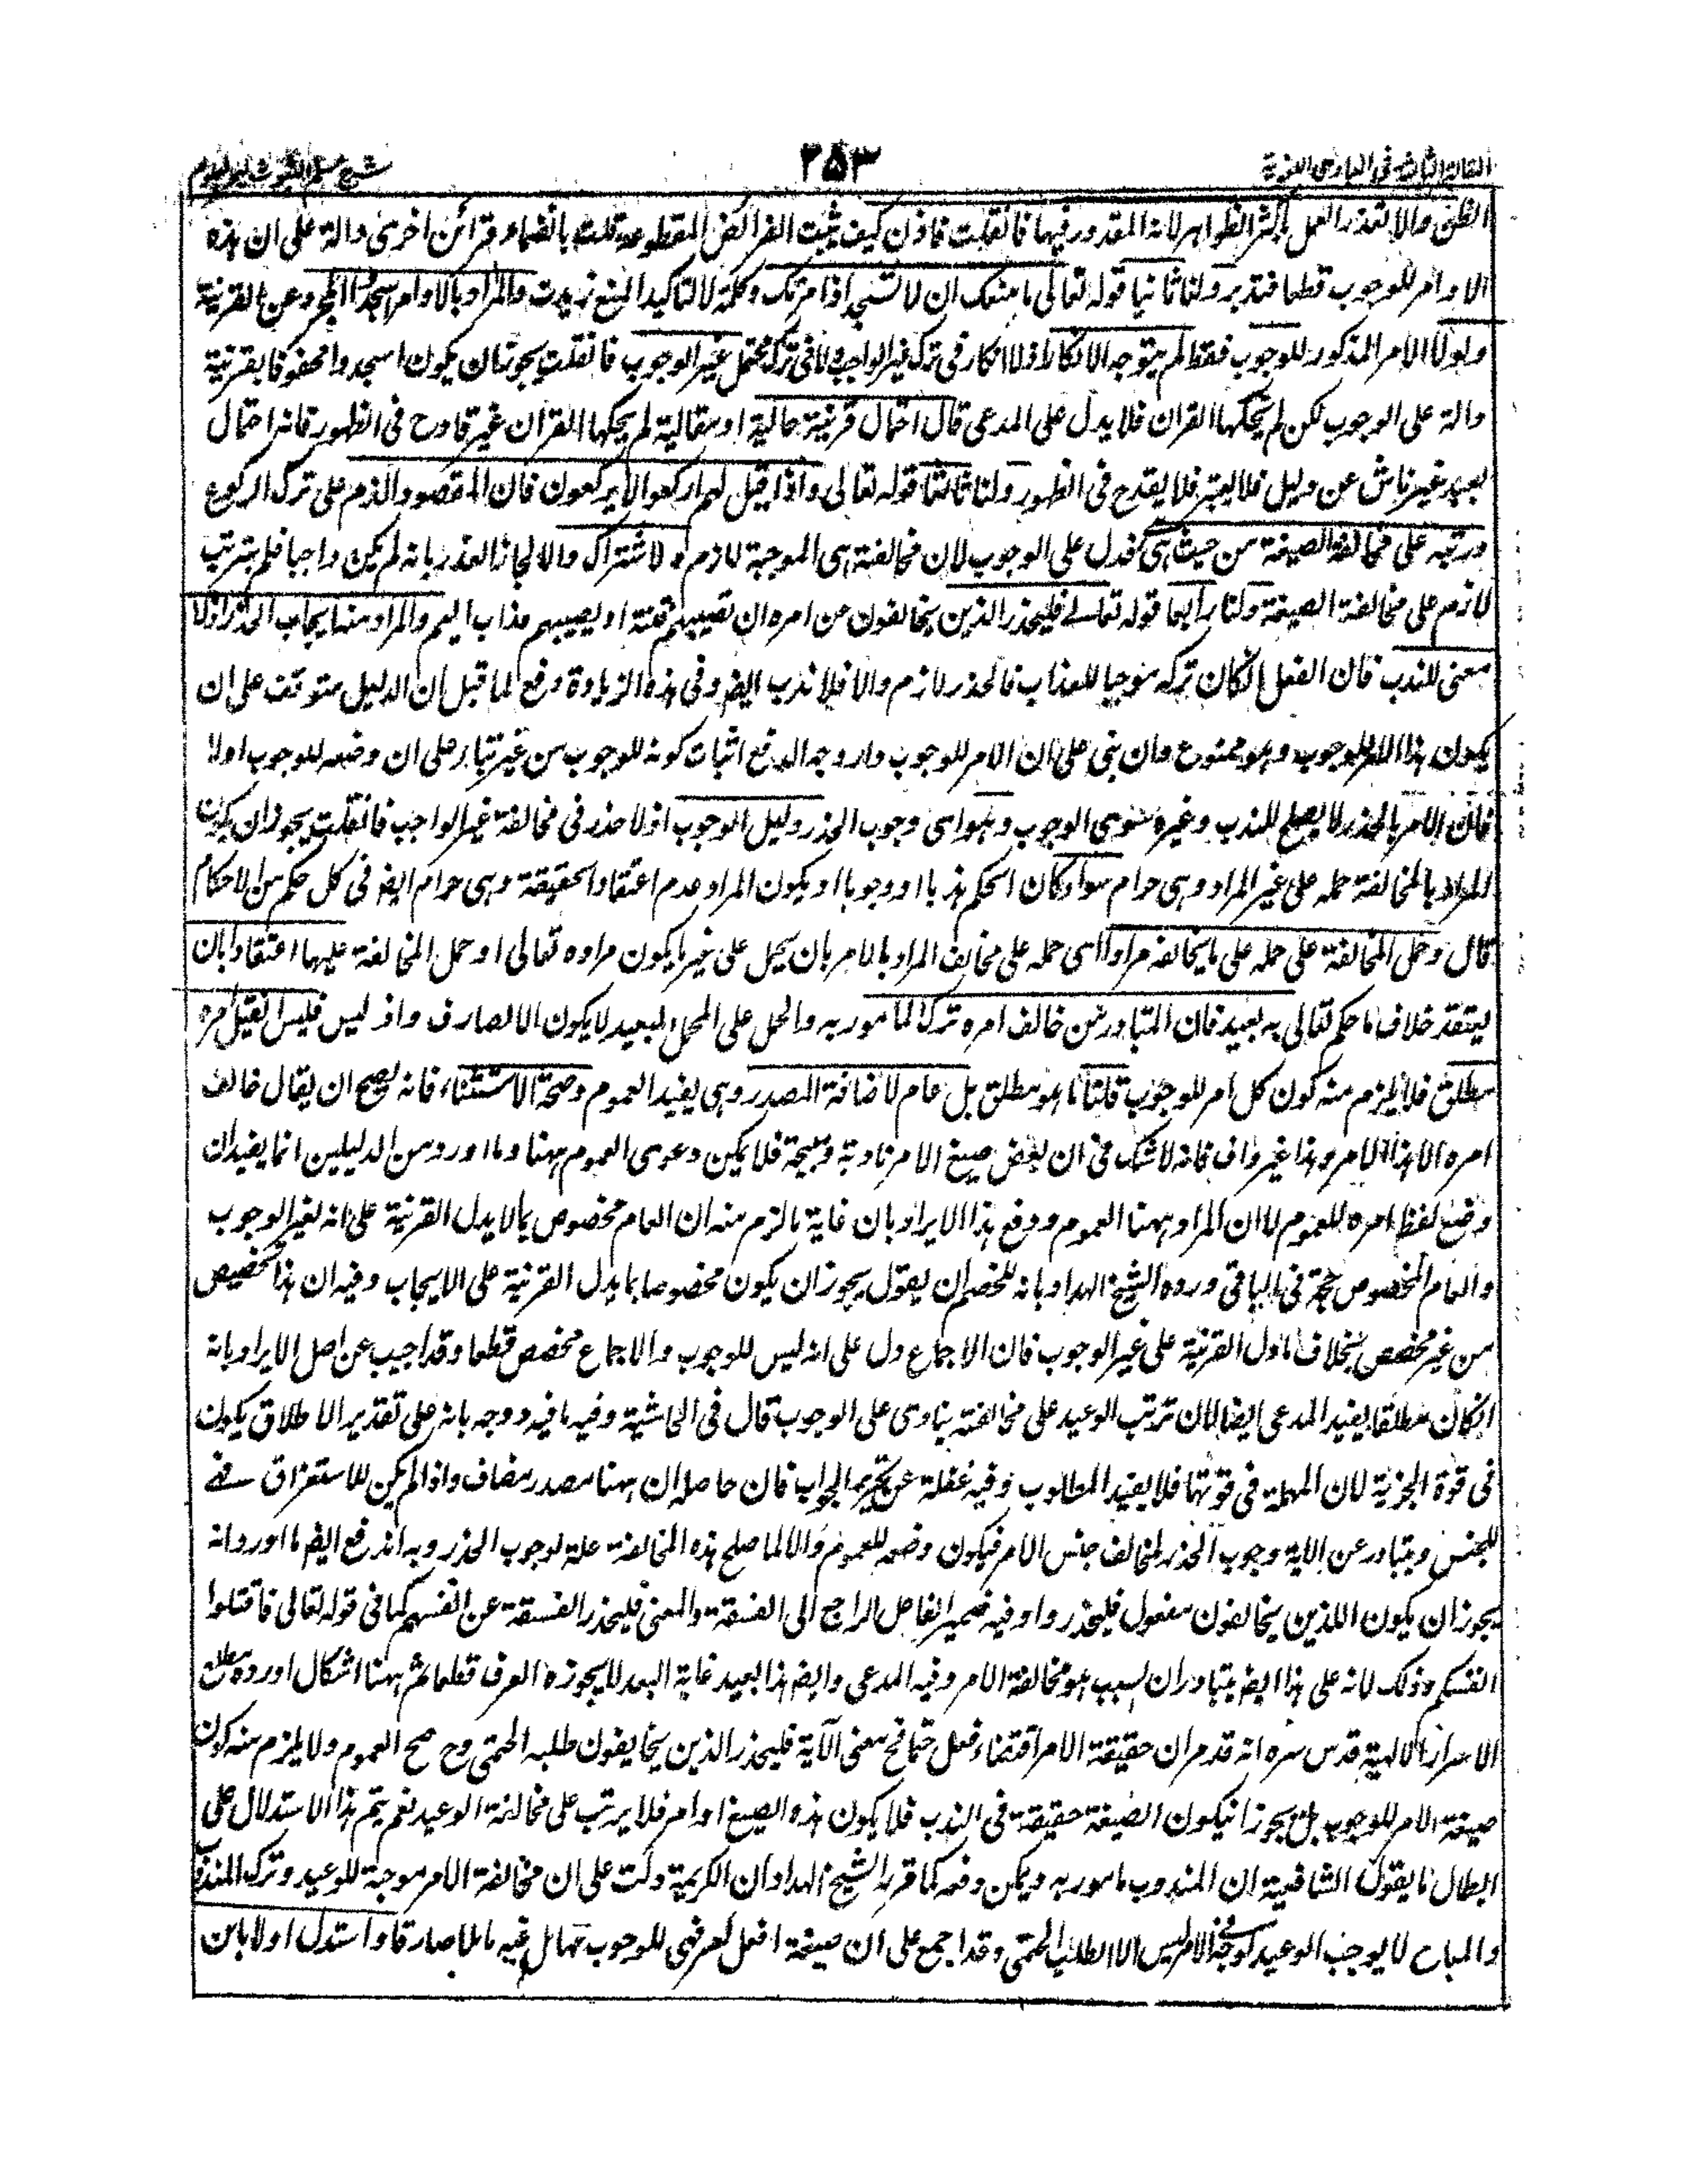 المقالة الثانية في المبادي اللغوية ۲۵۳ شرح مسلم الثبوت لبحر العلوم
الظن والا لتعذر العمل باكثر الظواهر لانه المقدور فيها فانقلت فاذن كيف يثبت الفرائض المقطوعة قلت بانضمام قرائن اخرى دالة على ان هذه
الاوامر للوجوب قطعا فتدبر ولنا ثانيا قوله تعالى ما منعك ان لا تسجد اذ امرتك وكلمة لا لتاكيد المنع زيدت والمراد بالاوامر اسجدوا المجرد عن القرينة
ولولا الامر المذكور للوجوب فقط لم يتوجه الانكار اذ لا انكار في ترك غير الواجب ولا في ترك محتمل غير الوجوب فانقلت يجوز ان يكون اسجدوا محفوفا بقرينة
دالة على الوجوب لكن لم يحكها القران فلا يدل على المدعى قال احتمال قرينة حالية او مقالية لم يحكها القران غير قادح في الظهور فانه احتمال
بعيد غير ناش عن دليل فلا يعتبر فلا يقدح في الظهور ولنا ثالثا قوله تعالى واذا قيل لهم اركعوا لا يركعون فان المقصود الذم على ترك الركوع
ورتبه على مخالفة الصيغة من حيث هى فدل على الوجوب لان مخالفته هى الموجبة للذم ولا شتراك والا لجاز العذر بانه لم يكن واجبا فلم يترتب
لازم على مخالفة الصيغة ولنا رابعا قوله تعالے فليحذر الذين يخالفون عن امره ان تصيبهم فتنة او يصيبهم عذاب اليم والمراد منه ايجاب الحذر اذ لا
معنى للندب فان الفعل انكان تركه موجبا للعذاب فالحذر لازم والا فلا ندب ايضا وفي هذه الزيادة دفع لما قيل ان الدليل متوقف على ان
يكون هذا الامر للوجوب وهو ممنوع وان بنى على ان الامر للوجوب دار وجه الدفع اثبات كونه للوجوب من غير بناء على ان وضعه للوجوب اولا
فان الامر بالحذر لا يصلح للندب وغيره سوى الوجوب وهو اى وجوب الحذر دليل الوجوب اذ لا حذر في مخالفة غير الواجب فانقلت يجوز ان يكون
المراد بالمخالفة حمله على غير المراد وهى حرام سواء كان الحكم ندبا او وجوبا او يكون المراد عدم اعتقاد الحقيقة وهى حرام ايضا في كل حكم من الاحكام
قال وحمل المخالفة على حمله على ما يخالفه مراد اى حمله على مخالف المراد بالامر بان يحمل على غير ما يكون مراده تعالى او حمل المخالفة عليها اعتقادا بان
يعتقد خلاف ما حكم تعالى به بعيد فان المتبادر من خالف امره ترك المامور به والحمل على المحمل البعيد لا يكون الا لصارف واذ ليس فليس انقيل امره
مطلق فلا يلزم منه كون كل امر للوجوب قلنا ما هو مطلق بل عام لاضافة المصدر وهى يفيد العموم وصحة الاستثناء فانه يصح ان يقال خالف
امره الا هذا الامر وهذا غير واف فانه لا شك في ان بعض صيغ الامر نادبة ومبيحة فلا يمكن دعوى العموم ههنا وما اورد من الدليلين انما يفيدان
وضع لفظ امره للعموم لا ان المراد ههنا العموم ودفع هذا الايراد بان غاية ما لزم منه ان العام مخصوص بما لا يدل القرينة على انه لغير الوجوب
والعام المخصوص حجة في الباقي ورده الشيخ الهداد بانه للخصم ان يقول يجوز ان يكون مخصوصا بما يدل القرينة على الايجاب وفيه ان هذا تخصيص
من غير مخصص بخلاف ما دل القرينة على غير الوجوب فان الاجماع دل على انه ليس للوجوب والاجماع مخصص قطعا وقد اجيب عن اصل الايراد بانه
انكان مطلقا يفيد المدعى ايضا لان ترتب الوعيد على مخالفته ينادى على الوجوب قال في الحاشية وفيه ما فيه ووجه بانه على تقدير الاطلاق يكون
في قوة الجزئية لان المهملة في قوتها فلا يفيد المطلوب وفيه غفلة عن تحرير الجواب فان حاصله ان ههنا مصدر مضاف واذا لم يكن للاستغراق فهے
للجنس ويتبادر عن الاية وجوب الحذر لمخالف جنس الامر فيكون وضعه للعموم والا لما صلح هذه المخالفة علة لوجوب الحذر وبه اندفع ايضا ما اورد انه
يجوز ان يكون اللذين يخالفون مفعول فليحذروا وفيه ضمير الفاعل الراجع الى الفسقة والمعنى فليحذر الفسقة عن انفسهم كما في قوله تعالى فاقتلوا
انفسكم وذلك لانه على هذا ايضا يتبادر ان السبب هو مخالفة الامر وفيه المدعى وايضا هذا بعيد غاية البعد لا يجوزه العرف قطعا ثم ههنا اشكال اورده مطلع
الاسرار الالهية قدس سره انه قد مر ان حقيقة الامر اقتضاء فعل حتما فح معنى الآية فليحذر الذين يخالفون طلبه الحتمى وح صح العموم ولا يلزم منه كون
صيغة الامر للوجوب بل يجوز ان يكون الصيغة حقيقة في الندب فلا يكون هذه الصيغ اوامر فلا يرتب على مخالفة الوعيد نعم يتم هذا الاستدلال على
ابطال ما يقول الشافعية ان المندوب مامور به ويمكن دفعه كما قرره الشيخ الهداد ان الكريمة دلت على ان مخالفة الامر موجبة للوعيد وترك المندوب
والمباح لا يوجب الوعيد الامر ليس الا الطلب الحتمى وقد اجمع على ان صيغة افعل امر فهى للوجوب غيره ما لها صارفا واستدل اولا بان